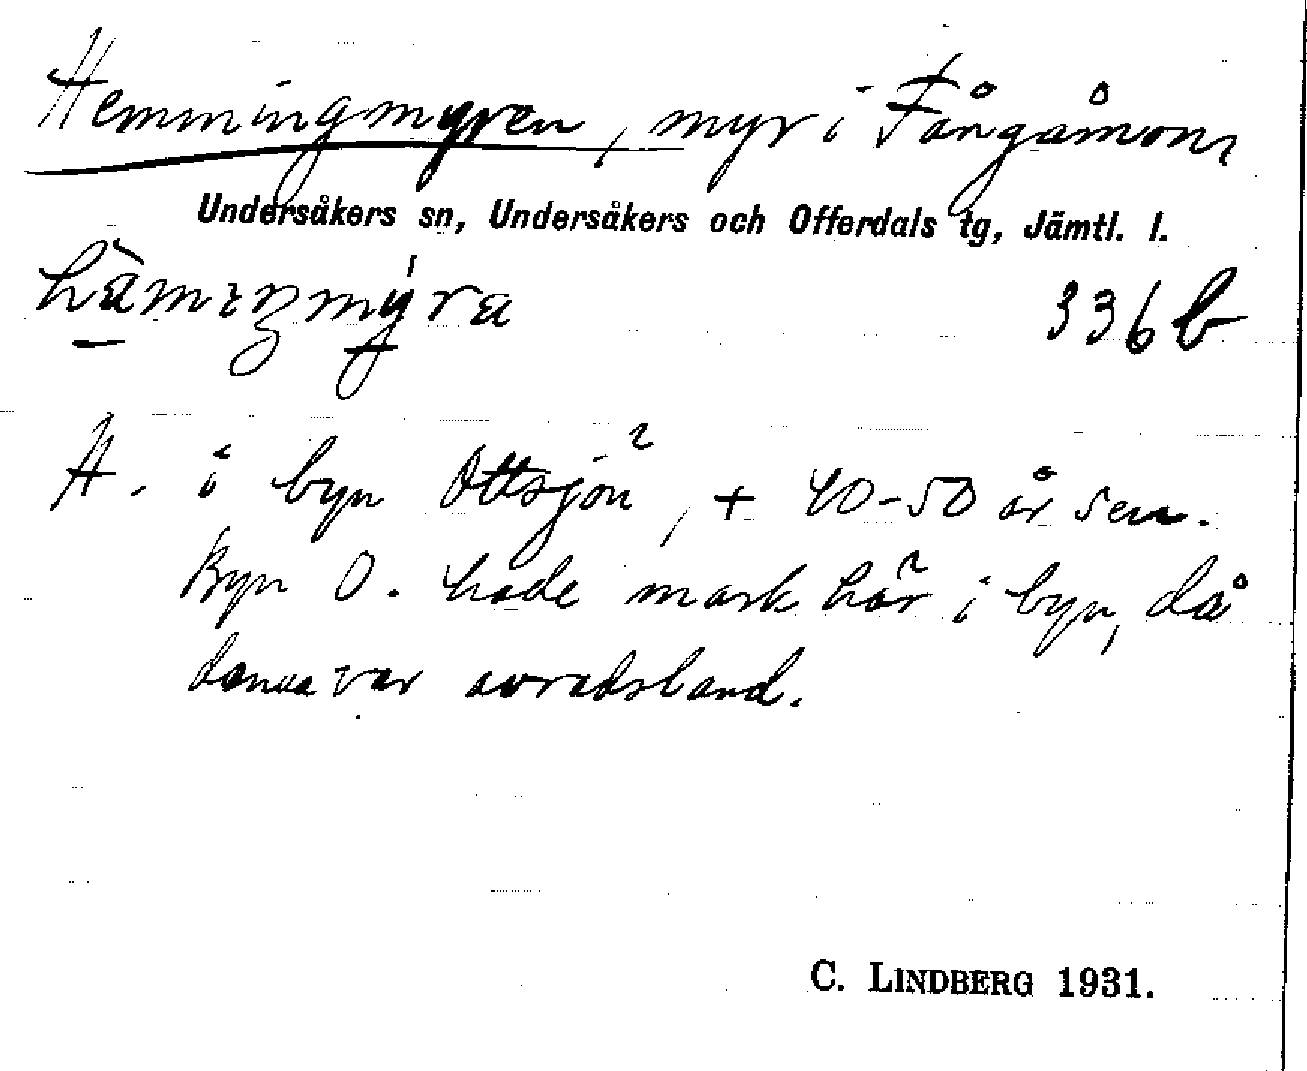 Hemmingmyren, myr i Fångåmon,
Undersåkers sn, Undersåkers och Offerdals tg, Jämtl. l.
hä̀mıŋmýra
336 b
H. i byn Ottsjön, + 40-50 år sen.
Byn O. hade mark här i byn, då
denna var avradsland.
C. LINDBERG 1931.